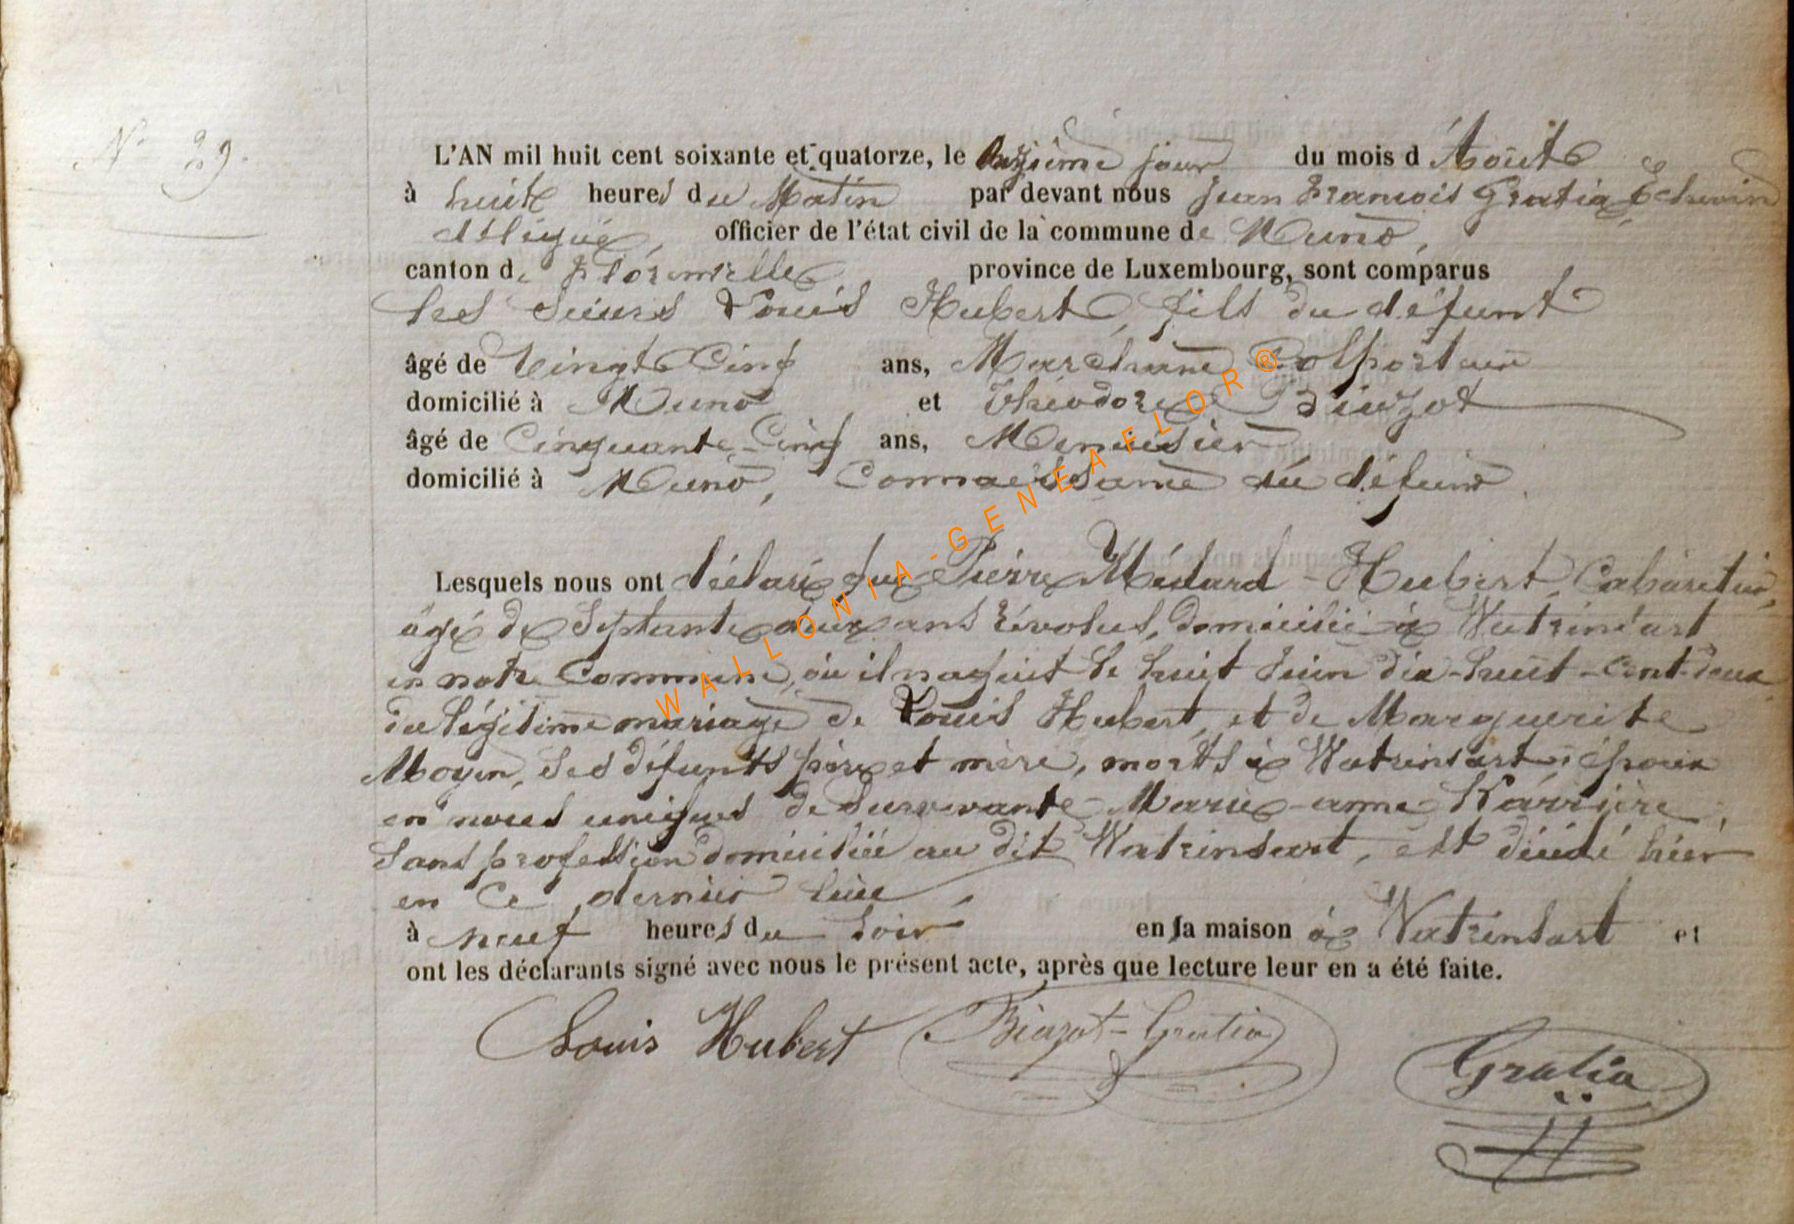 N° 29.
L'AN mil huit cent soixante et quatorze, le onzième jour du mois d'Août
à huit heures du Matin par devant nous Jean François Gratia, Echevin
délégué, officier de l'état civil de la commune de Muno,
canton de Florenville province de Luxembourg, sont comparus
les sieurs Louis Hubert, fils du défunt
âgé de Vingt Cinq ans, Marchand Colporteur
domicilié à Muno et Théodore Biazot
âgé de Cinquante-Cinq ans, Menuisier
domicilié à Muno, Connaissance du défunt
Lesquels nous ont déclaré que Pierre Médard Hubert, Cabaretier,
âgé de Septante deux ans révolus, domicilié à Watrinsart
en notre Commune, où il naquit le huit Juin dix-huit-cent-deux
du légitime mariage de Louis Hubert, et de Marguerite
Moyen, ses défunts père et mère, morts à Watrinsart, époux
en noces uniques de Survivante Marie-anne
Sans profession domiciliée au dit Watrinsart, est décédé hier
en ce dernier lieu,
à neuf heures du Soir en sa maison à Watrinsart et
ont les déclarants signé avec nous le présent acte, après que lecture leur en a été faite.
Louis Hubert Biazot-Gratia
Gratia
WALLONIA-GENEAFLOR®